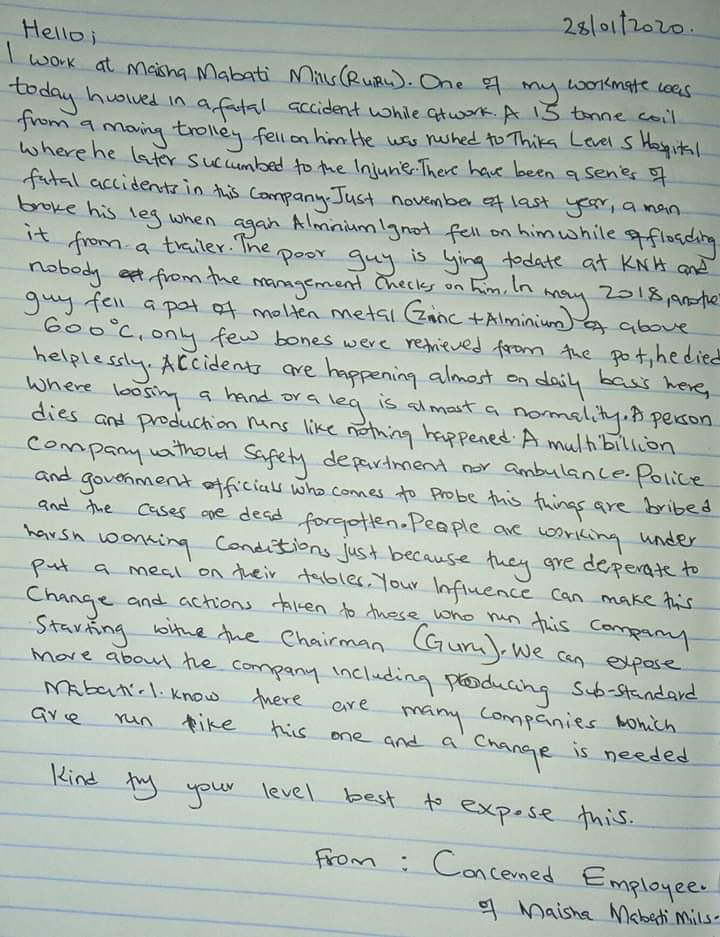 28/01/2020.
Hello;
I work at Maisha Mabati Mills (RUIRU). One of my workmate was
today Involved in a fatal accident while at work. A 15 tonne coil
from a moving trolley fell on him. He was rushed to Thika Level 5 Hospital
where he later succumbed to the Injuries. There have been a series of
fatal accidents in this company. Just november of last year, a man
broke his leg when again Alminium Ignot fell on him while offloading
it from a trailer. The poor guy is lying todate at KNH and
nobody from the management checks on him. In may 2018, another
guy fell a pot of molten metal (Zinc + Alminium) of above
600°C, only few bones were retrieved from the pot, he died
helplessly. Accidents are happening almost on daily basis here,
where loosing a hand or a leg is almost a normality. A person
dies and production runs like nothing happened. A multibillion
company without safety department nor ambulance. Police
and government officials who comes to probe this things are bribed
and the cases are dead forgotten. People are working under
harsh working conditions just because they are deperate to
put a meal on their tables. Your Influence can make this
change and actions taken to those who run this company
Starting withe the Chairman (Guru). We can expose
more about the company including producing sub-standard
Mabati. I know there are many companies which
are run like this one and a change is needed
Kind try your level best to expose this.
From : Concerned Employee.
of Maisha Mabati Mills.